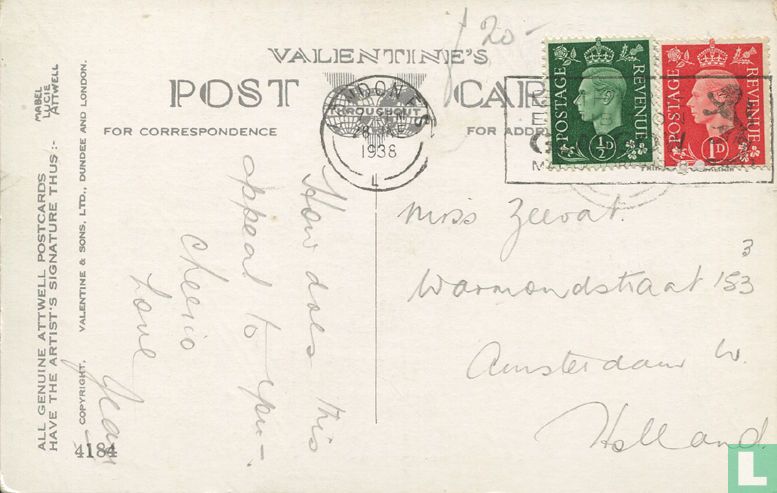 ƒ 20-
VALENTINE'S
POST CAR
FOR CORRESPONDENCE
FOR ADDRE
THROUGHOUT
1938
L
POSTAGE REVENUE
½D
POSTAGE REVENUE
1D
How does this
appeal to you -.
Cheerio
Love
Jean
Miss Zeevat.
Warmondstraat 153
3
Amsterdam W.
Holland
ALL GENUINE ATTWELL POSTCARDS
HAVE THE ARTIST'S SIGNATURE THUS :-
MABEL
LUCIE
ATTWELL
COPYRIGHT. VALENTINE & SONS, LTD., DUNDEE AND LONDON.
4184
L